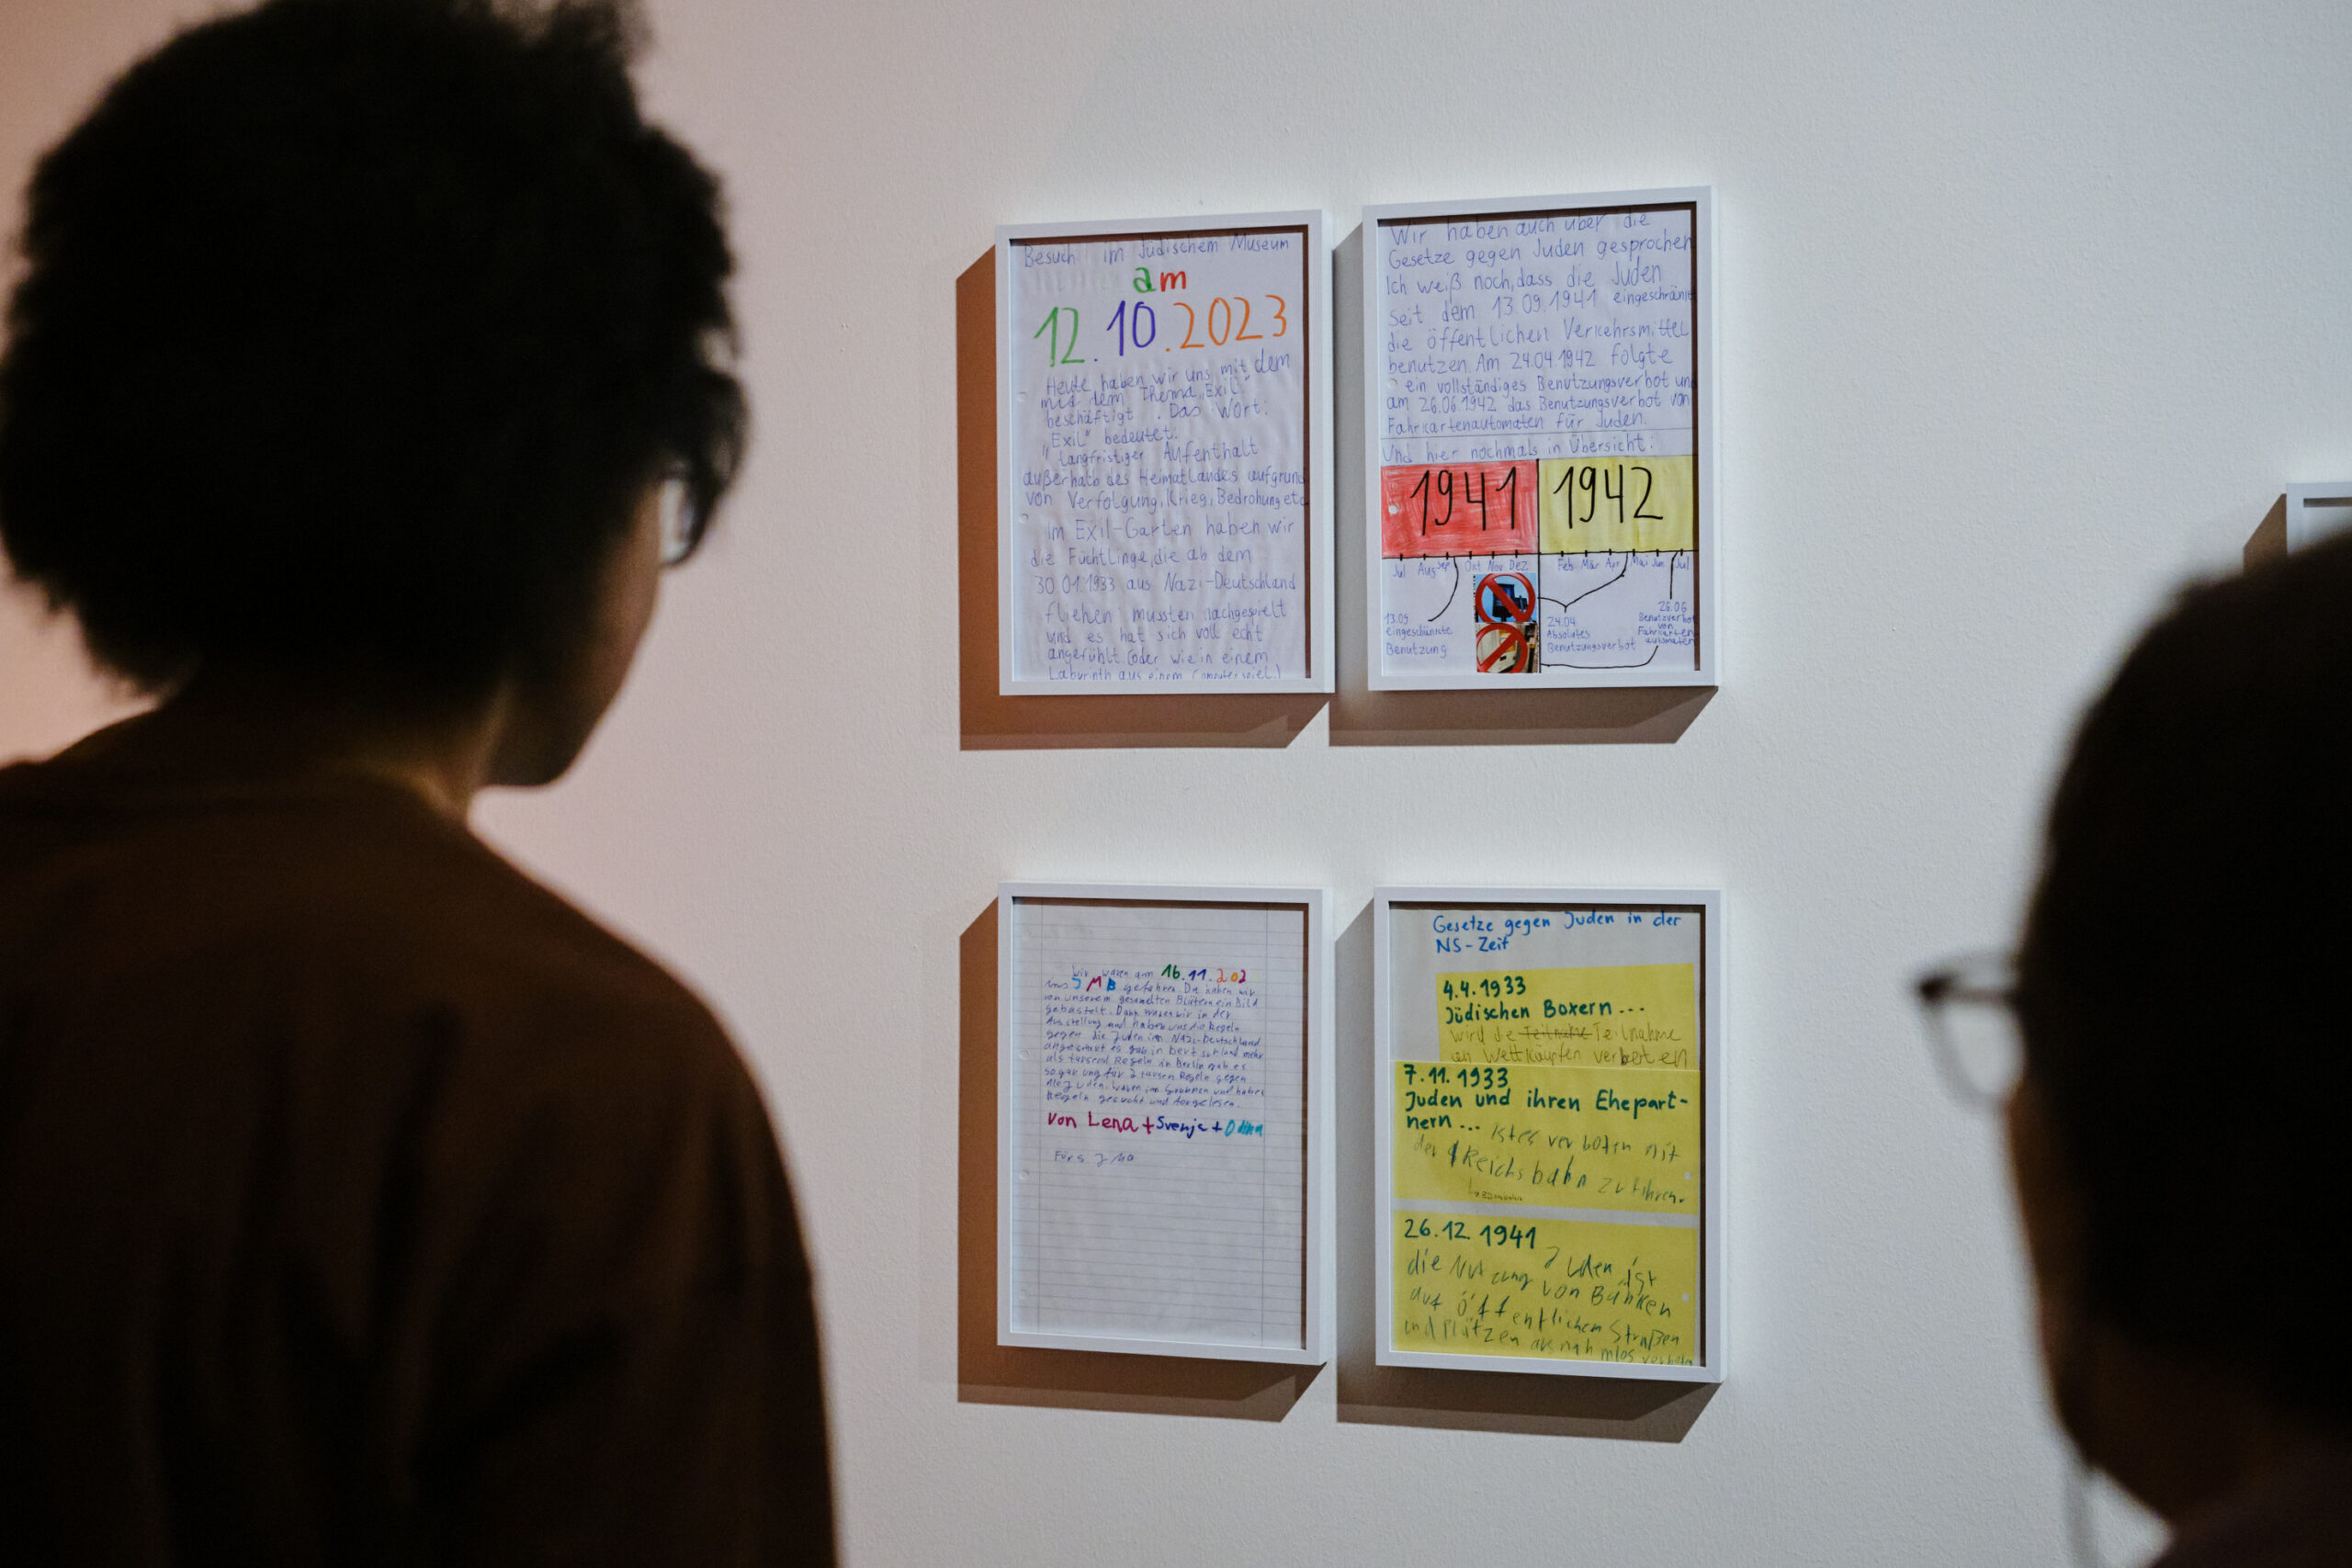 Besuch im Jüdischem Museum
am
12.10.2023
Heute haben wir uns mit dem
mit dem Thema „Exil"
beschäftigt. Das Wort:
„Exil" bedeutet:
"langfristiger Aufenthalt
außerhalb des Heimatlandes aufgrund
von Verfolgung, Krieg, Bedrohung etc
im Exil-Garten haben wir
die Füchtlinge, die ab dem
30.01.1933 aus Nazi-Deutschland
fliehen mussten nachgespielt
und es hat sich voll echt
angefühlt (oder wie in einem
Labyrinth aus einem Computerspiel)
Wir haben auch über die
Gesetze gegen Juden gesprochen
Ich weiß noch, dass die Juden
seit dem 13.09.1941 eingeschränkt
die öffentlichen Verkehrsmittel
benutzen. Am 24.04.1942 folgte
ein vollständiges Benutzungsverbot und
am 26.06.1942 das Benutzungsverbot von
Fahrkartenautomaten für Juden.
Und hier nochmals in Übersicht:
1941 1942
Jul Aug Sep Okt Nov Dez Feb Mär Apr Mai Jun Jul
13.09
eingeschränkte
Benutzung
24.04
Absolutes
Benutzungsverbot
26.06
Benutzverbot
von
Fahrkarten-
automaten
Wir waren am 16.11.202
ins JMB gefahren. Da haben wir
von unserem gesamelten Blätern ein Bild
gebastelt. Dann waren wir in der
Ausstellung und haben uns die Regeln
gegen die Juden im NAZi-Deutschland
angeschaut es gab in Deutschland mehr
als tausend Regeln in Berlin gab es
sogar ung für 2 tausen Regeln gegen
die Juden. waren in Gruppen und haben
Regeln gesucht und forgelesen.
von Lena + Svenja + Odina
Gesetze gegen Juden in der
NS-Zeit
4.4.1933
Jüdischen Boxern...
wird die Teilnahme
an Wettkämpfen verboten
7.11.1933
Juden und ihren Ehepart-
nern... ist es verboten mit
der Reichsbahn zu fahren.
26.12.1941
die Nutzung Juden ist
von Bänken
auf öffentlichen Straßen
und Plätzen ausnahmlos